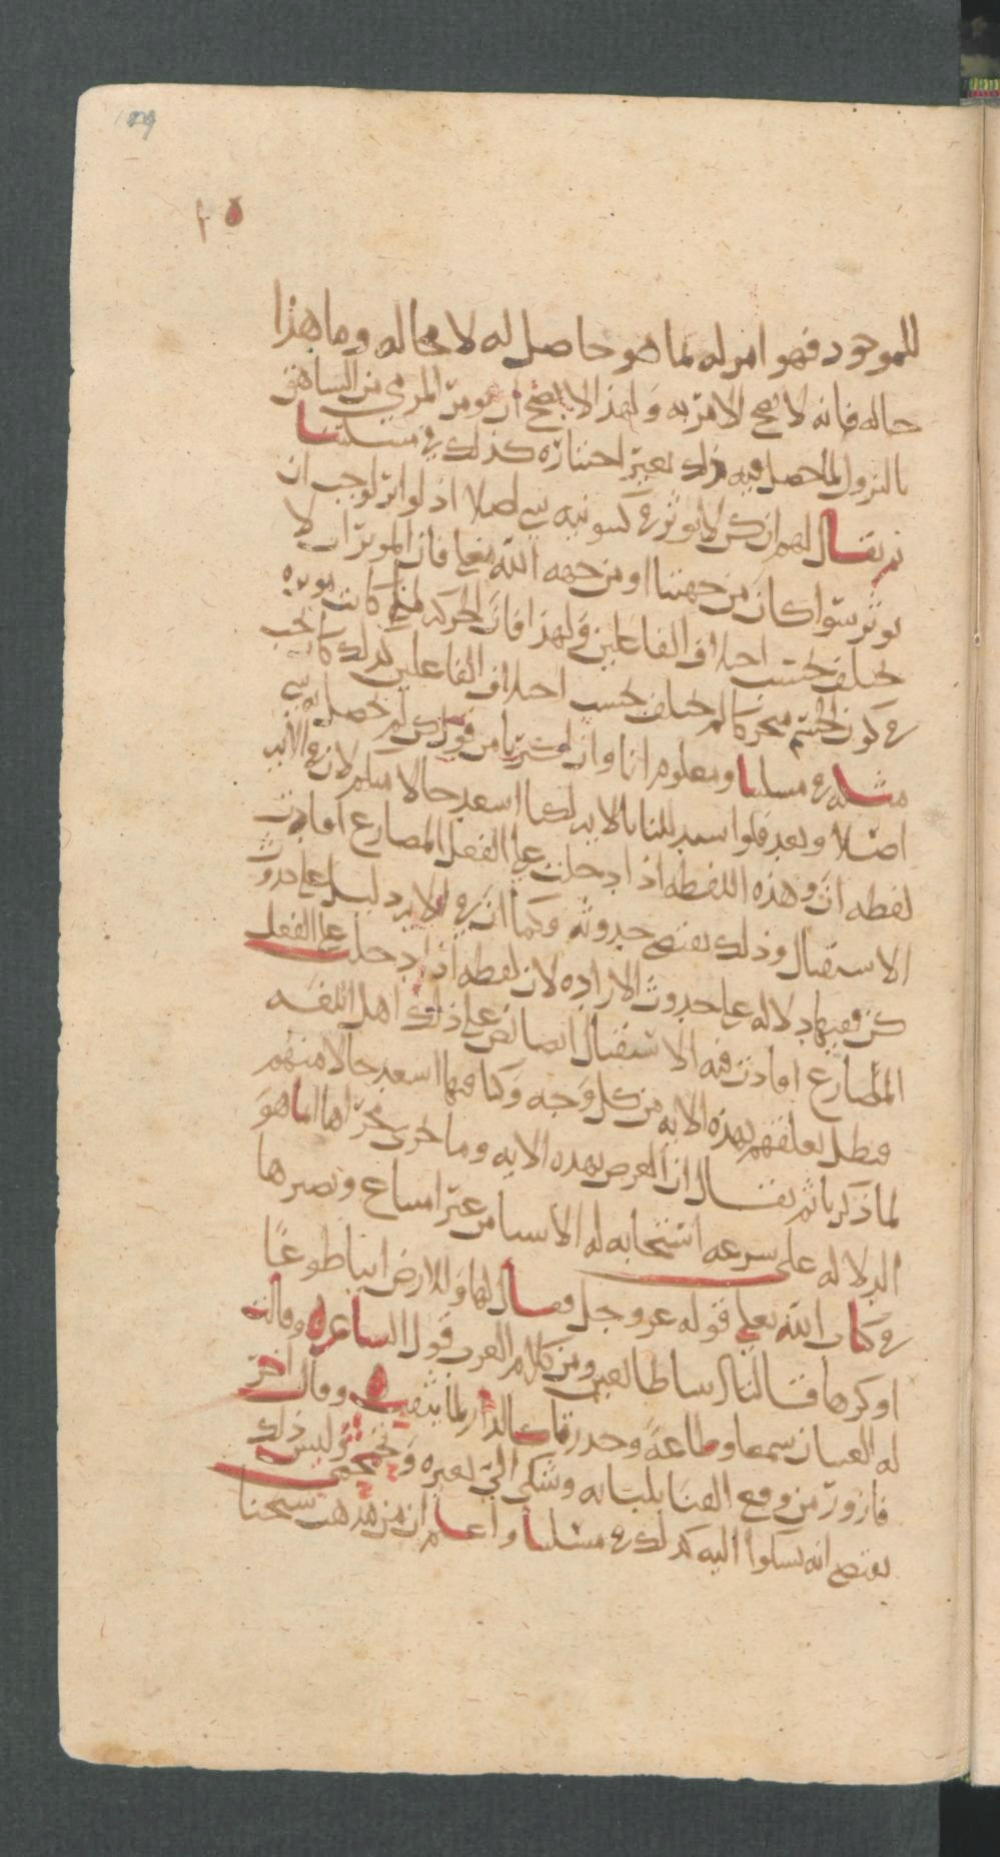 للموجود فهو امر له بما هو حاصل له لا محاله وما هذا
حاله فانه لا يصح الامر به ولهذا لا يصح ان يومر المرمي من الشاهق
بالنزول لما حصل فيه ذلك بغير اختياره كذلك في مسئلتنا
ثم يقال لهم ان كن لا يوثر في كسونيه شي اصلا اذ لو اثر لوجب ان
يوثر سوا كان من جهتنا او من جهه الله تعلى فان الموثرات لا
تختلف بحسب اختلاف الفاعلين ولهذا فان الحركه لما كانت موثره
في كون الجسم متحركا لم تختلف بحسب اختلاف الفاعلين كذلك كان يجب
مثله في مسلتنا ومعلوم انا وان اكثرنا من قول كن لم يحصل شي
اصلا وبعد فلو استدللنا بالايه لكنا اسعد حالا منكم لان في الايه
لفظه ان وهذه اللفظه اذا دخلت على الفعل المضارع افادت
الاستقبال وذلك يقتضي حدوثه وكما ان في الايه دليل على حدوث
كن ففيها دلاله على حدوث الاراده لان لفظه اذا دخلت على الفعل
المضارع افادت فيه الاستقبال ايضا نص على ذلك اهل اللغه
فبطل تعلقهم بهذه الايه من كل وجه وكنا فيها اسعد حالا منهم
لما ذكرنا ثم يقال ان الغرض بهذه الايه وما جرى مجراها انما هو
الدلاله على سرعه استجابه له الاشيا من غير امتناع ونصيرها
في كتاب الله تعلى قوله عز وجل فقال لها وللارض ايتيا طوعا
او كرها قالتا اتينا طايعين ومن كلام العرب قول الشاعر وقالت
له العينان سمعا وطاعة وحدرتا كالدر لما يثقب وقال اخر
فازور من وقع القنا بلبانه وشكى الي بعبره وتحمحم وليس ذلك
يقتضي انه يشكوا اليه كذلك في مسئلتنا واعلم ان من مذهب شيخنا